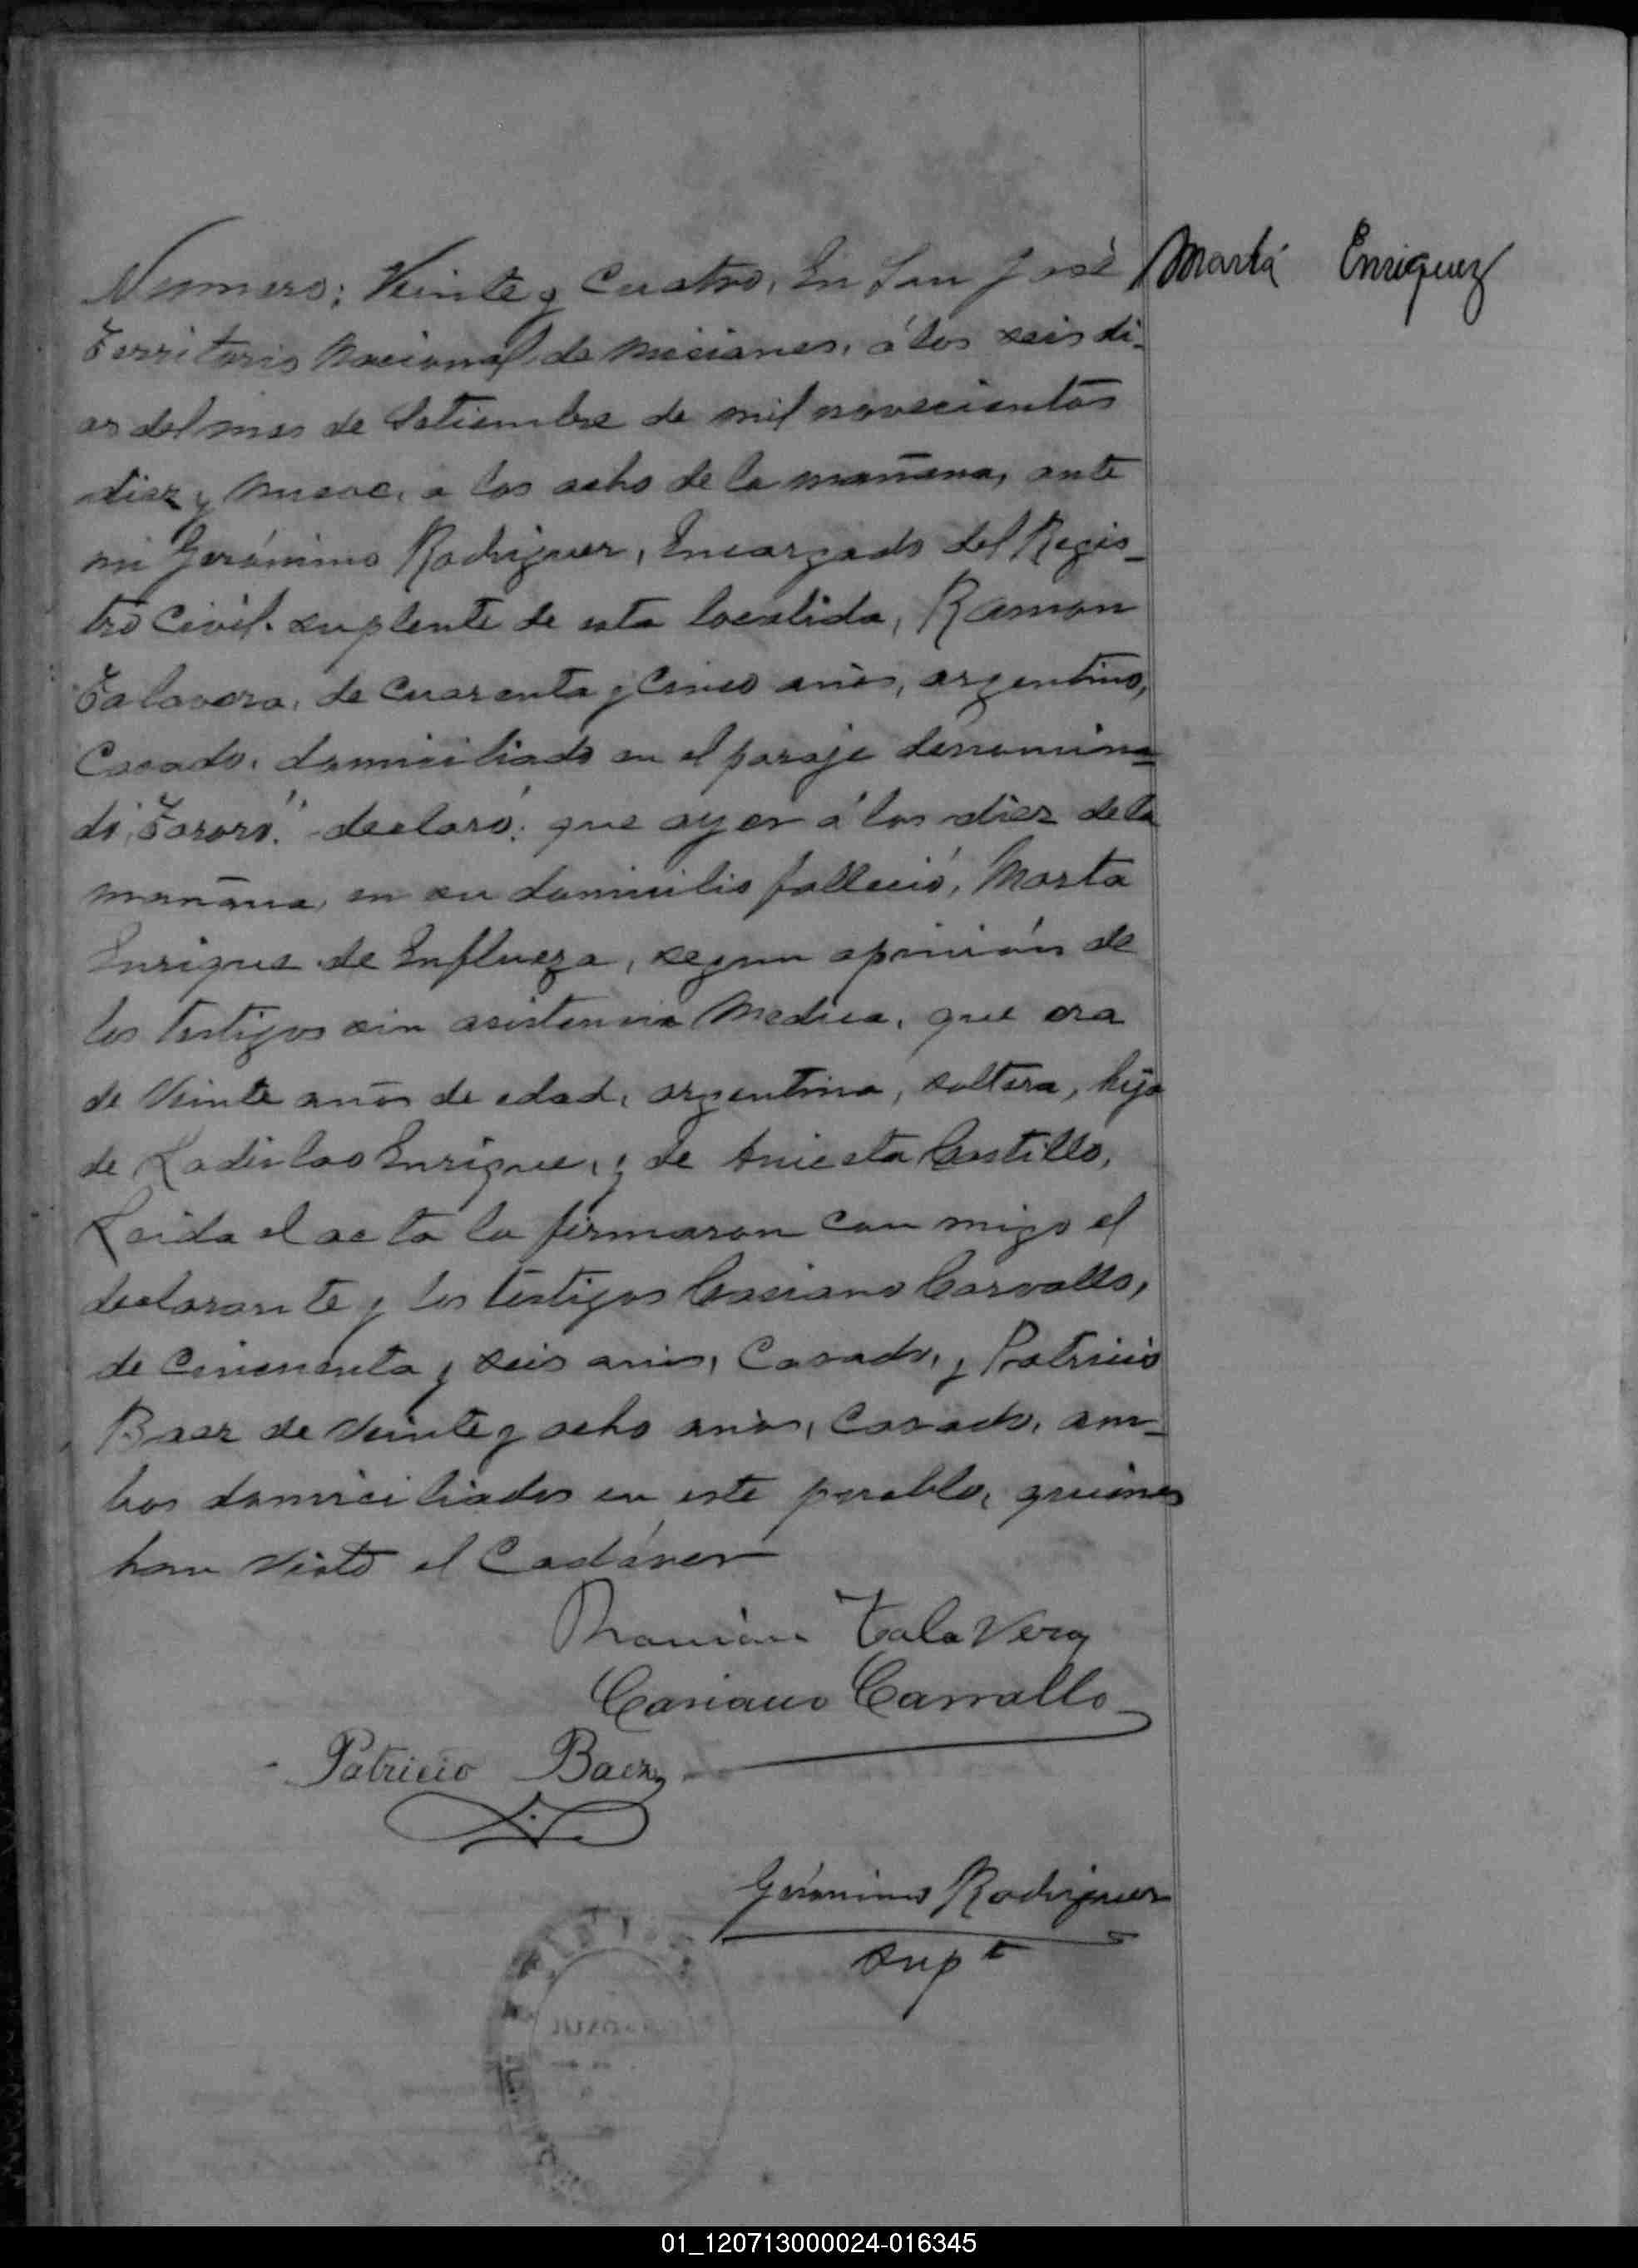 Numero; Veinte y Cuatro, En San José
Territorio Nacional de Miciones, á los seis di-
as del mes de Setiembre de mil novecientos
diez y nueve, a las ocho de la mañana, ante
mi Gerónimo Rodriguez, Encargado del Regis-
tro Civil suplente de esta localida, Ramon
Talavera, de cuarenta y Cinco años, argentino,
Casado, domiciliado en el paraje denomina=
do "Tororó" declaró: que ayer á las diez de la
mañana, en su domicilio falleció, Marta
Enrique de Influeza, segun opinión de
los testigos sin asistencia Medica, que era
de Veinte años de edad, argentina, soltera, hija
de Ladislao Enrique, y de Castillo,
Leida el acta la firmaron con migo el
declarante y los testigos Casiano Carvallo,
de Cincuenta y seis años, Casado, y Patricio
Baez de Veinte y ocho años, Casado, am-
bos domiciliados en este pueblo, quienes
han Visto el Cadáver
Marta Enriquez
Ramón TalaVera
Casiano Carvallo
Patricio Baez
Gerónimo Rodriguez
Supte
01_120713000024-016345